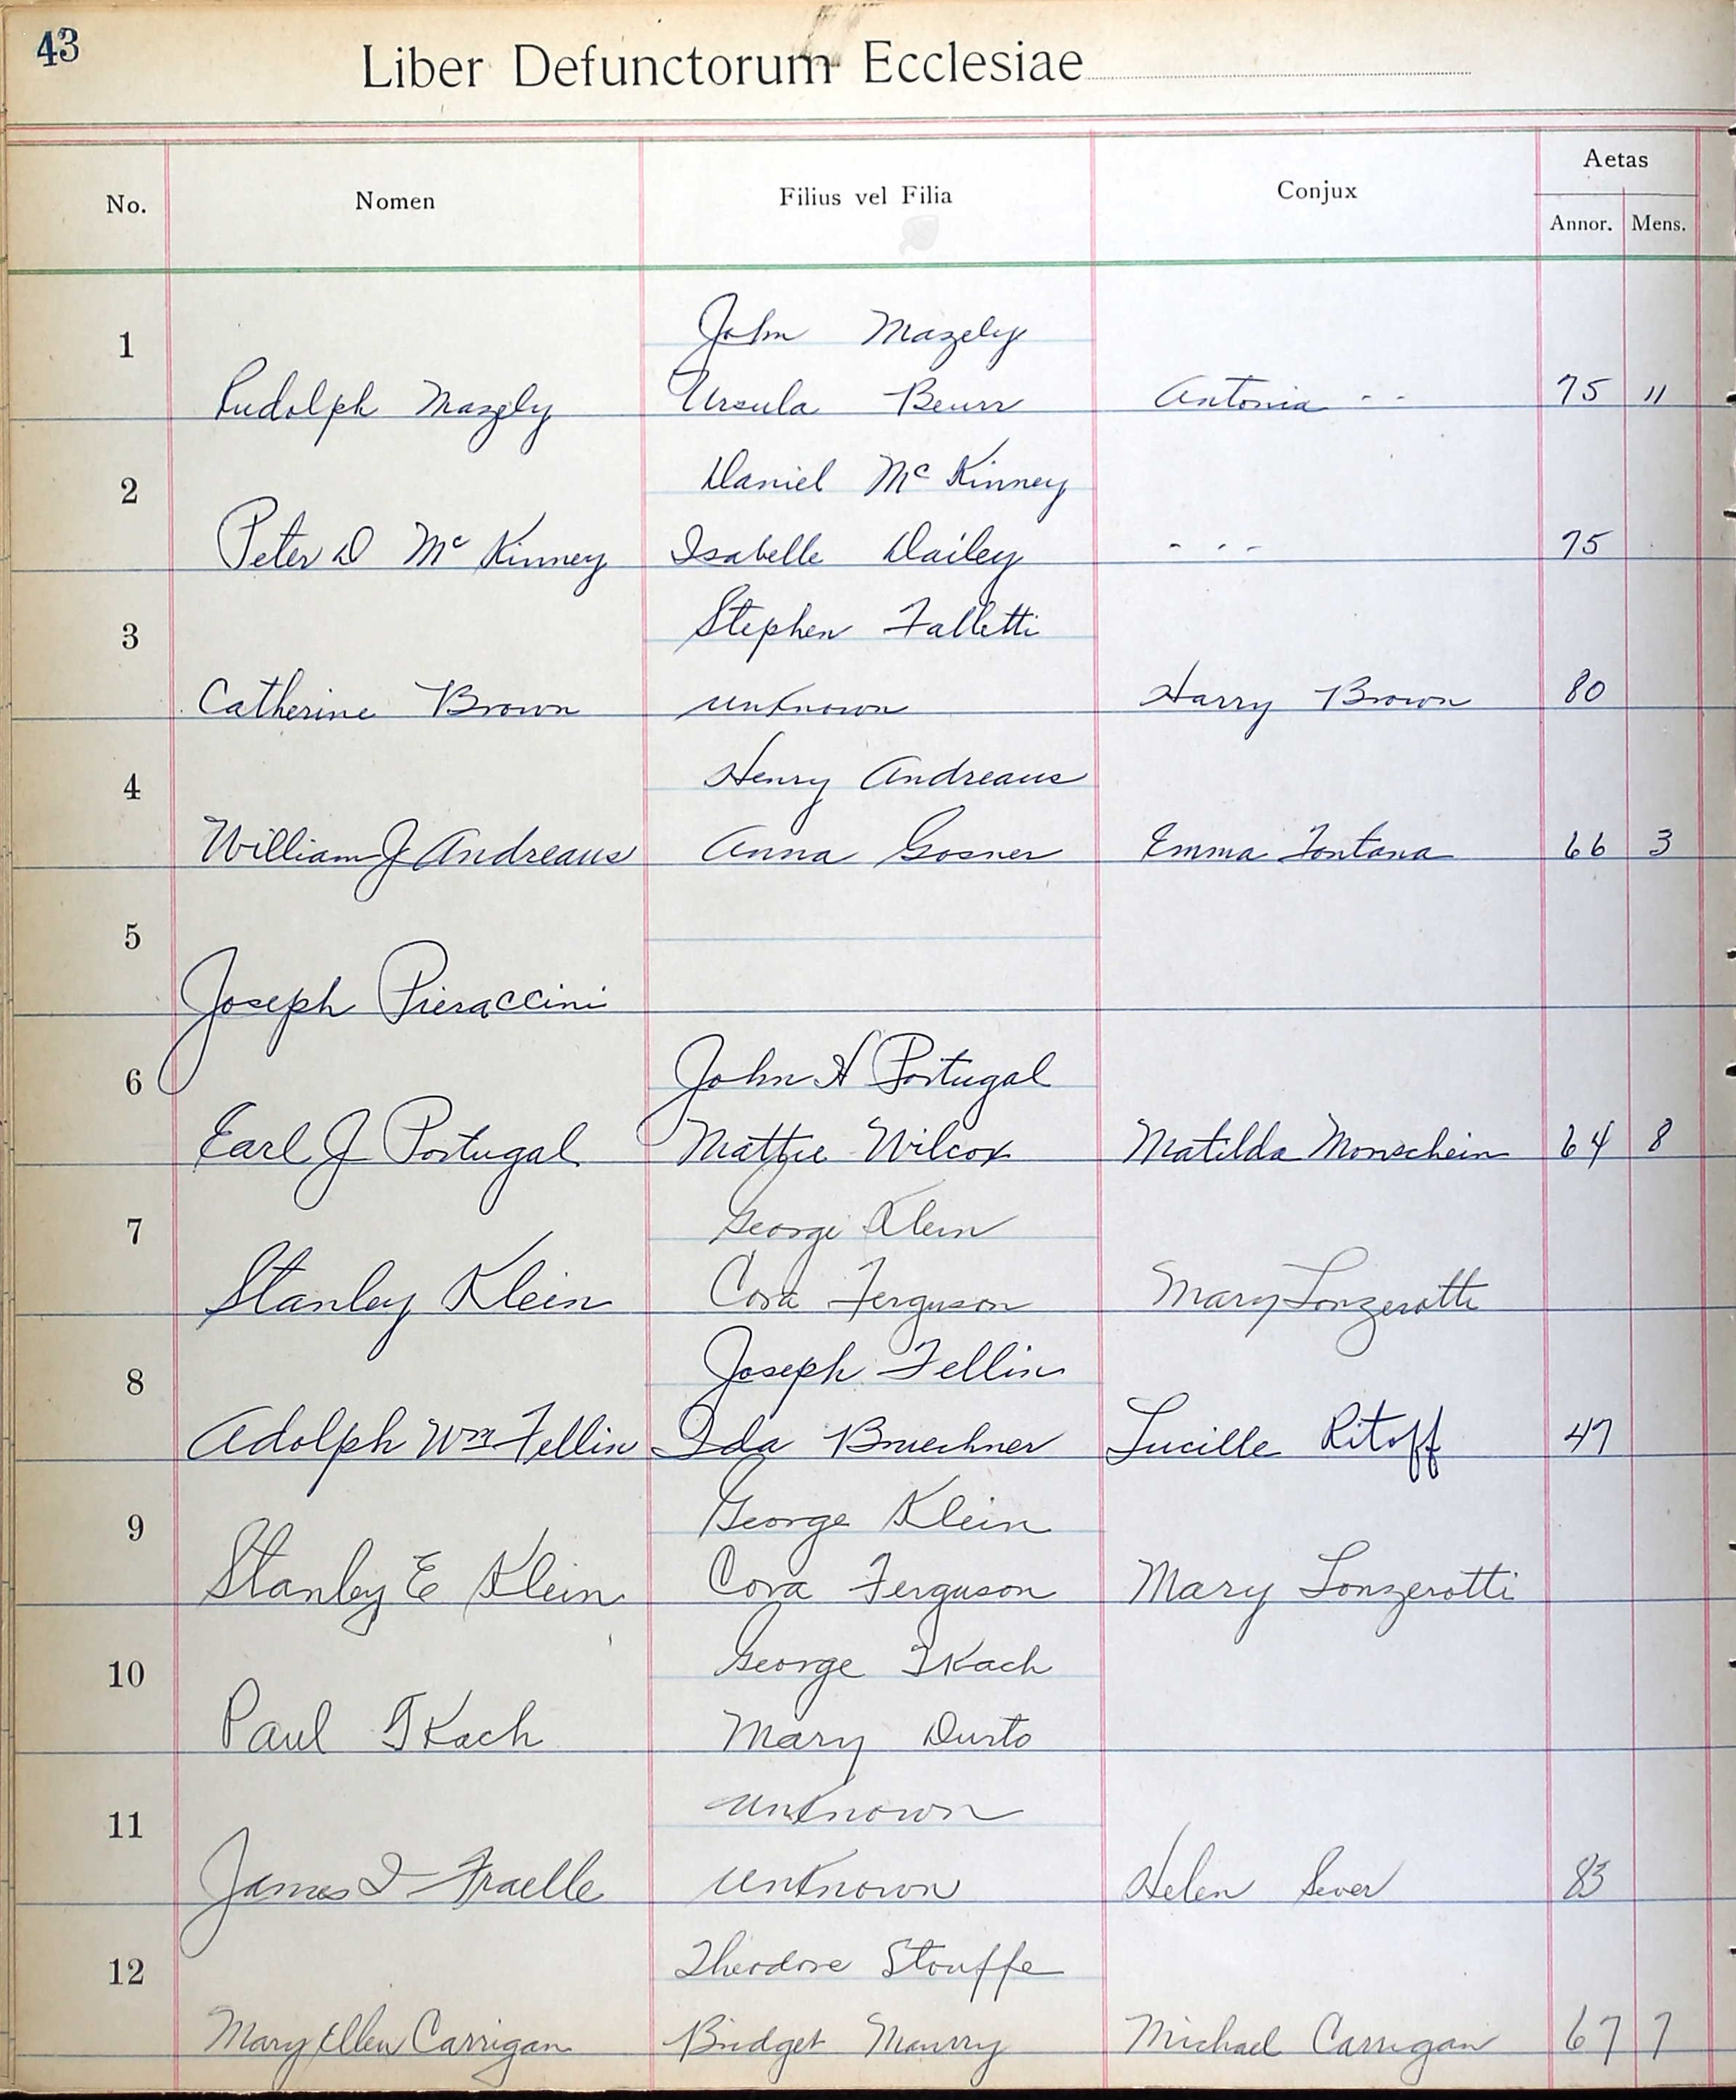 43
Liber Defunctorum Ecclesiae
No. Nomen Filius vel Filia Conjux Aetas
Annor. Mens.
1 John Mazely
Rudolph Mazely Ursula Beurr Antonia - - 75 11
2 Daniel Mc Kinney
Peter D Mc Kinney Isabelle Dailey - - - 75
3 Stephen Falletti
Catherine Brown unknown Harry Brown 80
4 Henry Andreaus
William J Andreaus Anna Gosner Emma Fontana 66 3
5
Joseph Pieraccini
6 John H Portugal
Earl J Portugal Mattie Wilcox Matilda Monschein 64 8
7 George Klein
Stanley Klein Cora Ferguson Mary Lonzerotti
8 Joseph Fellin
Adolph Wm Fellin Ida Bruechner Lucille Ritoff 47
9 George Klein
Stanley E Klein Cora Ferguson Mary Lonzerotti
10 George TKach
Paul TKach Mary Dusto
11 unknown
James I Fraelle unknown Helen Sever 83
12 Theodore Stouffe
Mary Ellen Carrigan Bridget Michael Carrigan 67 7